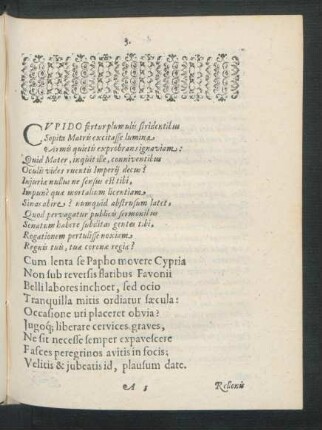 3.
CVPIDO fertur plumulis stridentibus
Sopita Matris excitasse lumina,
Animi quietis exprobrans ignaviam:
Quid Mater, inquit ille, conniventibus
Oculis vides ruentis Imperij decus?
Injuriæ nullusne sensus est tibi,
Impunè quæ mortalium licentiam
Sinas abire? numquid abstrusum latet,
Quod pervagatur publicis sermonibus
Senatum habere subditas gentes tibi,
Rogationem pertulisse noxiam
Regnis tuis, tuæ coronæ regia?
Cum lenta se Papho movere Cypria
Non sub reversis flatibus Favonii
Belli labores inchoet, sed ocio
Tranquilla mitis ordiatur sæcula:
Occasione uti placeret obvia?
Jugoq; liberare cervices graves,
Ne sit necesse semper expavescere
Fasces peregrinos avitis in focis;
Velitis & jubeatis id, plausum date.
A 3 Rellonis